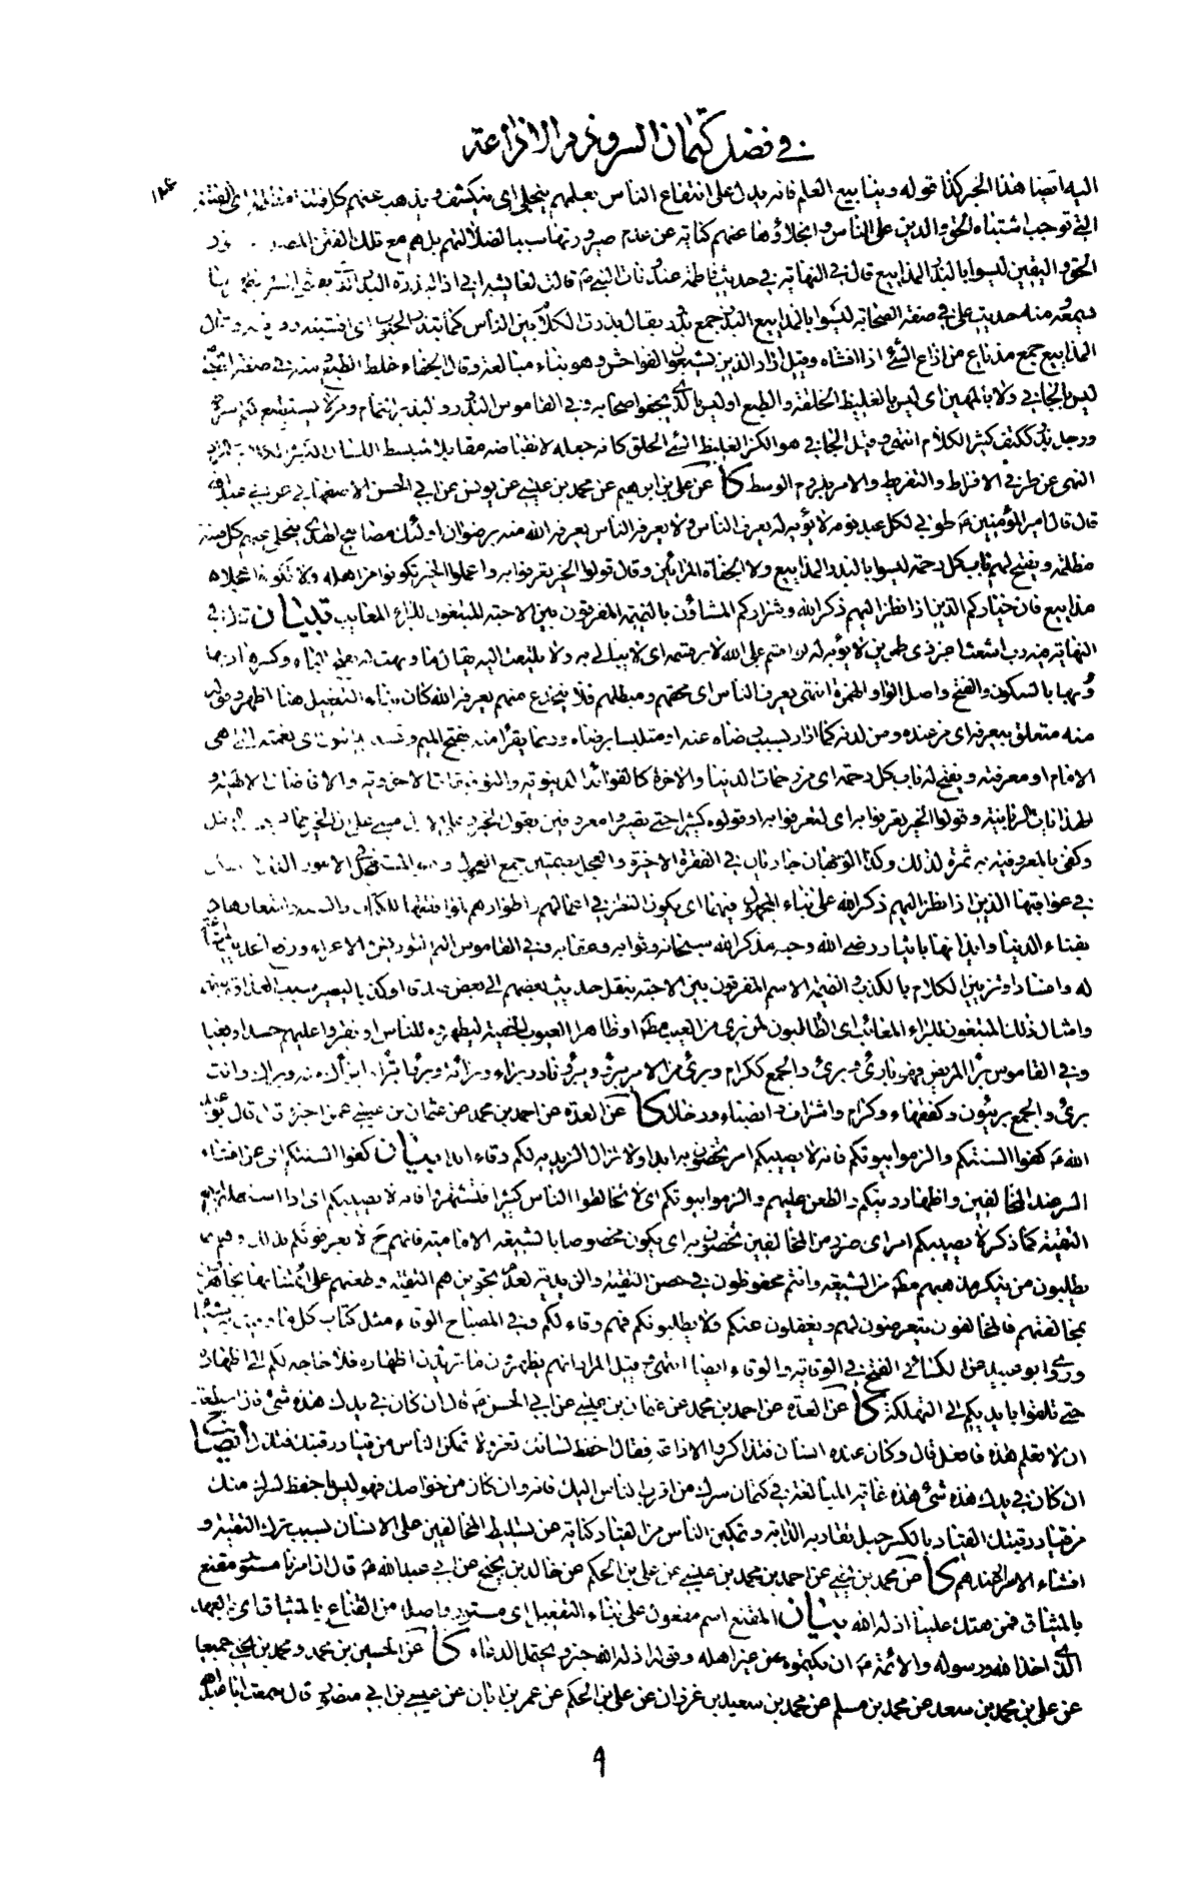 في فضل كتمان السر وذم الاذاعة
١٨٤
اليه ايضا هذا الخبر كذا قوله وينابيع العلم فانه يدل على انتفاع الناس بعلمهم ينجلي اي ينكشف ويذهب عنهم كل فتنة
التي توجب اشتباه الحق والدين على الناس وانجلاؤها عنهم كناية عن عدم صيرورتها سببا لضلالتهم بل هم مع تلك الفتن
الحق واليقين ليسوا بالبذر المذاييع قال في النهاية في حديث فاطمة عند وفات النبي ص قالت لعايشة اني اذا لبذرة البذر الذي
ومنه حديث علي في صفة الصحابة ليسوا بالمذاييع البذر جمع بذور يقال بذرت الكلام بين الناس كما تبذر الحبوب اي افشيته وفرقته وقال
المذاييع جمع مذياع من اذاع الشئ اذا افشاه وقيل اراد الذين يشيعون الفواحش وهو بناء مبالغة وقال الجفاء غلظ الطبع ومنه في صفة النبي
ليس بالجافي ولا بالمهين اي ليس بالغليظ الخلقة والطبع او ليس بالذي يجفو اصحابه وفي القاموس البذور والبذير النمام ومن لا يستطيع كتم سره
ورجل بذر ككتف كثير الكلام انتهى وقيل الجافي هو الكز الغليظ السئ الخلق كانه جعله لانقباضه مقابلا لمنبسط اللسان
النهي عن طرفي الافراط والتفريط والامر بلزوم الوسط كا عن علي بن ابرهيم عن محمد بن عيسى عن يونس عن ابي الحسن الاصفهاني عن ابي عبدالله
قال قال امير المؤمنين ع طوبى لكل عبد نومة لا يؤبه له يعرف الناس ولا يعرفه الناس يعرفه الله منه برضوان اولئك مصابيح الهدى ينجلي عنهم كل فتنة
مظلمة ويفتح لهم باب كل رحمة ليسوا بالبذر المذاييع ولا الجفاة المرائين وقال قولوا الخير تعرفوا به واعملوا الخير تكونوا من اهله ولا تكونوا عجلا
مذاييع فان خياركم الذين اذا نظر اليهم ذكر الله وشراركم المشاؤن بالنميمة المفرقون بين الاحبة المبتغون للبراء المعايب بيان قال في
النهاية فيه رب اشعث اغبر ذي طمرين لا يؤبه له لو اقسم على الله لابر قسمه اي لا يبالي به ولا يلتفت اليه يقال ما وبهت له بفتح الباء وكسرها
وبها بالسكون والفتح واصل الواو الهمزة انتهى يعرف الناس اي محقهم ومبطلهم فلا ينخدع منهم يعرفه الله كان بناء التفعيل هنا اظهر وقوله
منه متعلق بيعرفه اي من عنده ومن لدنه كما اراد بسبب رضاه عنه او متلبسا برضاه وربما يقرأ منه بفتح الميم وتشديد النون اي نعمته التي هي
الامام او معرفته ويفتح له باب كل رحمة اي من رحمات الدنيا والاخرة كالفوائد الدنيوية والتوفيقات الاخروية والافاضات الالهية و
الهدايات الربانية وقولوا الخير تعرفوا به اي لتعرفوا به او قولوه كثيرا حتى تصيروا معروفين بقول الخير
وكفى بالمعروفية به ثمرة لذلك وكذا الوجهان جاريان في الفقرة الاخيرة والعجل بضمتين جمع العجول وهو المستعجل في الامور الذي لا يتفكر
في عواقبها الذين اذا نظر اليهم ذكر الله على بناء المجهول فيهما اي يكون النظر في اعمالهم واطوارهم لموافقتها للكتاب والسنة واشعارها
بفناء الدنيا وايذانها بايثار رضى الله وحبه مذكرا لله سبحانه وثوابه وعقابه وفي القاموس النم التوريش والاغراء ورفع الحديث اشاعة
له وافسادا وتزيين الكلام بالكذب والنميمة الاسم المفرقون بين الاحبة بنقل حديث بعضهم الى بعض صدقا او كذبا ليصير سبب العداوة بينهم
وامثال ذلك المبتغون للبراء المعايب اي الطالبون لمن برئ من العيب مطلقا او ظاهرا العيوب الخفية ليظهروه للناس او يفتروا عليهم حسدا وبغيا
وفي القاموس برأ المريض فهو بارئ وبرئ والجمع ككرام وبرئ من الامر يبرؤ ويبرؤ نادر براء وبراءة وبرءا تبرأ وابرأك منه وبراك وانت
برئ والجمع بريئون وكفقهاء وكرام واشراف وانصباء ورخال كا عن العدة عن احمد بن محمد عن عثمان بن عيسى عمن اخبره قال قال ابوعبد
الله ع كفوا السنتكم والزموا بيوتكم فانه لا يصيبكم امر تخصون به ابدا ولا تزال الزيدية لكم وقاء ابدا بيان كفوا السنتكم اي عن افشاء
السر عند المخالفين واظهار دينكم والطعن عليهم والزموا بيوتكم اي لا تخالطوا الناس كثيرا فتشتهروا فانه لا يصيبكم اي اذا استعملتم
التقية كما ذكر لا يصيبكم امر اي ضرر من المخالفين تخصون به اي يكون مخصوصا بالشيعة الامامية فانهم ح لا يعرفونكم بذلك وهم انما
يطلبون من ينكر مذهبهم مطلقا من الشيعة وانتم محفوظون في حصن التقية والزيدية لعدم تجويزهم التقية وطعنهم على ائمتنا بها يجاهرون
بمخالفتهم فالمخالفون يتعرضون لهم ويغفلون عنكم ولا يطلبونكم فهم وقاء لكم وفي المصباح الوقاء مثل كتاب كل ما وقيت به شيئا
وروى ابو عبيد عن الكسائي الفتح في الوقاية والوقاء ايضا انتهى وقيل المراد انهم يظهرون ما تريدون اظهاره فلا حاجة لكم الى اظهاره
حتى تلقوا بايديكم الى التهلكة كا عن العدة عن احمد بن محمد عن عثمان بن عيسى عن ابي الحسن ع قال ان كان في يدك هذه شئ فان استطعت
ان لا تعلم هذه فافعل قال وكان عنده انسان فتذاكروا الاذاعة فقال احفظ لسانك تعز ولا تمكن الناس من قياد رقبتك فتذل ايضاح
ان كان في يدك هذه شئ هذه غاية المبالغة في كتمان سرك من اقرب الناس اليك فانه وان كان من خواصك فهو ليس باحفظ لسرك منك
من قياد رقبتك القياد بالكسر حبل تقاد به الدابة وتمكين الناس من القياد كناية عن تسليط المخالفين على الانسان بسبب ترك التقية و
افشاء الاسرار عندهم كا عن محمد بن يحيى عن احمد بن محمد بن عيسى عن علي بن الحكم عن خالد بن نجيح عن ابي عبدالله ع قال ان امرنا مستور مقنع
بالميثاق فمن هتك علينا اذله الله بيان المقنع اسم مفعول على بناء التفعيل اي مستور واصله من القناع بالميثاق اي بالعهد
الذي اخذ الله ورسوله والائمة ع ان يكتموه عن غير اهله وقوله اذله الله خبر ويحتمل الدعاء كا عن الحسين بن محمد ومحمد بن يحيى جميعا
عن علي بن محمد بن سعد عن محمد بن مسلم عن محمد بن سعيد بن غزوان عن علي بن الحكم عن عمر بن ابان عن عيسى بن ابي منصور قال سمعت ابا عبدالله
٩